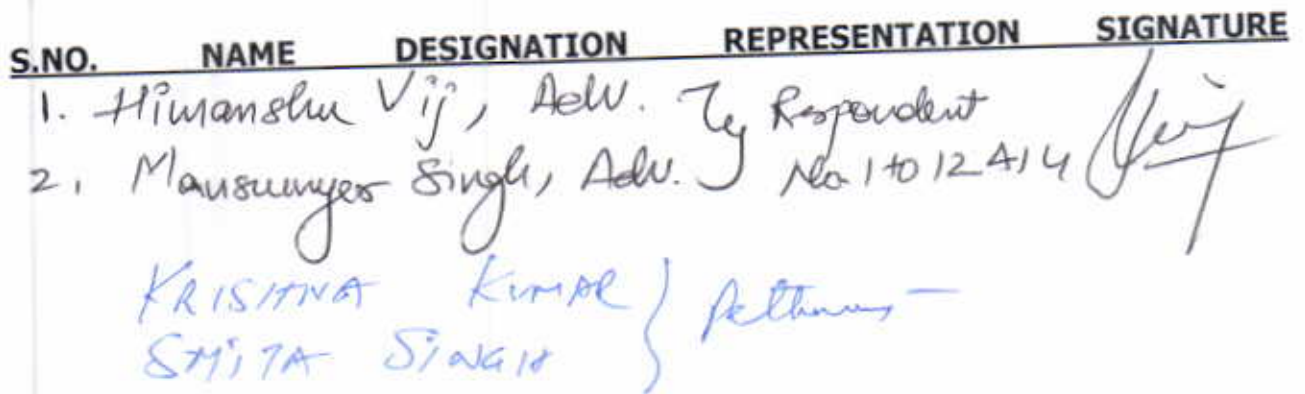 S.NO. NAME DESIGNATION REPRESENTATION SIGNATURE
1. Himanshu Vij, Adv. } Respondent
2. Singh, Adv. } No. 1 to 12 & 14
KRISHNA KUMAR }
SMITA SINGH }